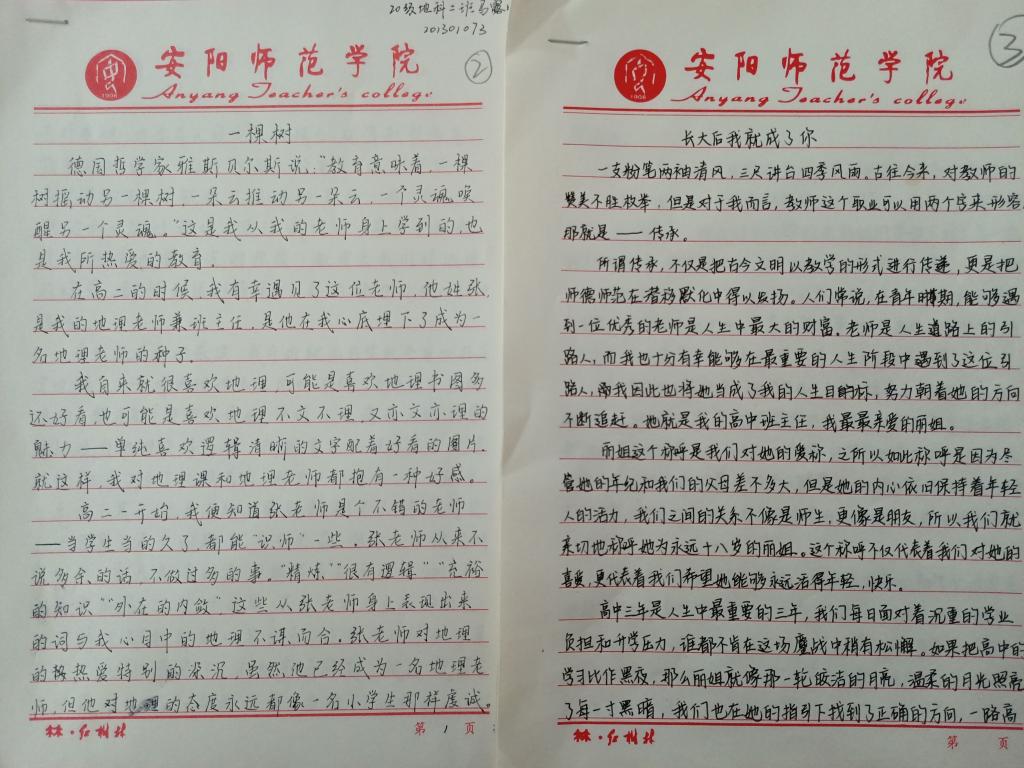 20级地科二班马
201301073
②
安阳师范学院
Anyang Teacher's college
1908
一棵树
德国哲学家雅斯贝尔斯说:"教育意味着,一棵
树摇动另一棵树,一朵云推动另一朵云,一个灵魂唤
醒另一个灵魂。"这是我从我的老师身上学到的,也
是我所热爱的教育。
在高二的时候,我有幸遇见了这位老师,他姓张,
是我的地理老师兼班主任,是他在我心底埋下了成为一
名地理老师的种子。
我自来就很喜欢地理,可能是喜欢地理书图多
还好看,也可能是喜欢地理不文不理,又亦文亦理的
魅力——单纯喜欢逻辑清晰的文字配着好看的图片。
就这样,我对地理课和地理老师都抱有一种好感。
高二一开始,我便知道张老师是个不错的老师
——当学生当的久了,都能"识师"一些。张老师从来不
说多余的话,不做过多的事。"精炼""很有逻辑""充裕
的知识""外在的内敛"这些从张老师身上表现出来
的词与我心目中的地理不谋而合。张老师对地理
的热爱特别的深沉,虽然他已经成为一名地理老
师,但他对地理的态度永远都像一名小学生那样虔诚。
林·红树林
第 1 页
③
安阳师范学院
Anyang Teacher's college
1908
长大后我就成了你
一支粉笔两袖清风,三尺讲台四季风雨。古往今来,对教师的
赞美不胜枚举,但是对于我而言,教师这个职业可以用两个字来形容,
那就是——传承。
所谓传承,不仅是把古今文明以教学的形式进行传递,更是把
师德师范在潜移默化中得以发扬。人们常说,在青年时期,能够遇
到一位优秀的老师是人生中最大的财富。老师是人生道路上的引
路人,而我也十分有幸能够在最重要的人生阶段中遇到了这位引
路人,我因此也将她当成了我的人生目标,努力朝着她的方向
不断追赶。她就是我的高中班主任,我最最亲爱的丽姐。
丽姐这个称呼是我们对她的爱称,之所以如此称呼是因为尽
管她的年纪和我们的父母差不多大,但是她的内心依旧保持着年轻
人的活力,我们之间的关系不像是师生,更像是朋友,所以我们就
亲切地称呼她为永远十八岁的丽姐。这个称呼不仅代表着我们对她的
喜爱,更代表着我们希望她能够永远活得年轻、快乐。
高中三年是人生中最重要的三年,我们每日面对着沉重的学业
负担和升学压力,谁都不肯在这场鏖战中稍有松懈。如果把高中的
学习比作黑夜,那么丽姐就像那一轮皎洁的月亮,温柔的月光照亮
了每一寸黑暗,我们也在她的指引下找到了正确的方向,一路高
林·红树林
第 页